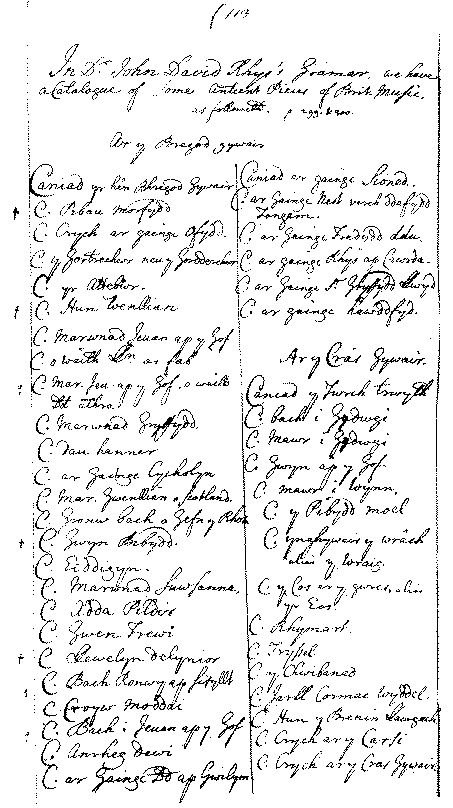 ( 113
In Dr. John David Rhys's Gramar, we have
a Catalogue of some antient Pieces of Brit. Music.
as followeth. p 299. & 300.
Ar y Bragod gywair
Caniad yr hên Bhragod Gywair
C. Pibau morfydd
C. Crych ar gainge Ofydd.
C. y Gorticheir neu y Gordderchwr
C. yr Atteior.
C. Hun Wenllian
C. Marwnad Jeuan ap y Gof
C. o waith ar fab
C. Mar. Jeu ap y Gof. o waith
Dd athro
C. Marwnad Gryffydd.
C. dau hanner
C. ar gainge Cyhelyn
C. Mar. Gwenllian o Scotland.
C. Gronw bach o Gefn y Rhos
C. Gwyn Bibydd.
C. Eiddigyn.
C. Marwnad Suwsanna.
C. Adda Pildir
C. Gwen Trewi
C. Llewelyn delynior
C. Bach Ronwy ap Sitsyllt
C. Croyw moddai
C. Bach i Jeuan ap y Gof
C. Anrheg Dewi
C. ar Gainge Dd ap Gwilym
Caniad ar gainge Sioned.
C. ar Gainge Nest verch ddafydd
Jongam.
C. ar Gainge Fredydd ddu.
C. ar gainge Rhys ap Cwrda.
C. ar Gainge Sr Gryffydd Llwyd
C. ar gainge hawddfyd.
Ar y Crâs Gywair.
Caniad y Twrch trwyth
C. bach i Gydwgi
C. Mawr i Gydwgi
C. Gwyn ap y Gof
C. mawr i Wynn.
C. y Pibydd moel
C. ynghywair y wrâch
alias y Wraig.
C. y Cos ar y gwres, alias
yr Eos.
C. Rhymart.
C. Trissel
C. y Chwibanad
C. Jarll Cormac Wyddel.
C. Hun y Brenin
C. Crych ar y Carsi
C. Crych ar y Cras Gywair